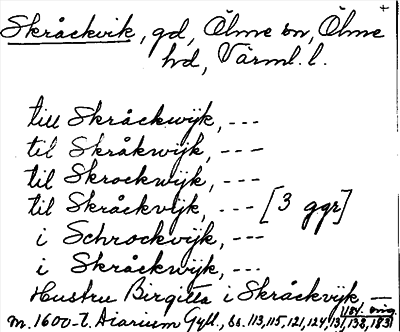 +
Skråckvik, gd, Ölme sn, Ölme
hd, Värml. l.
till Skråckwijk, ---
til Skråkwijk, ---
til Skrockwijk, ---
til Skråckvijk, --- [3 ggr]
i Schrockvijk, ---
i Skråkwijk, ---
Hustru Birgitta i Skråckvijk, —
m. 1600-t. Diarium Gyll., ss. 113, 115, 121, 124, 131, 138, 183